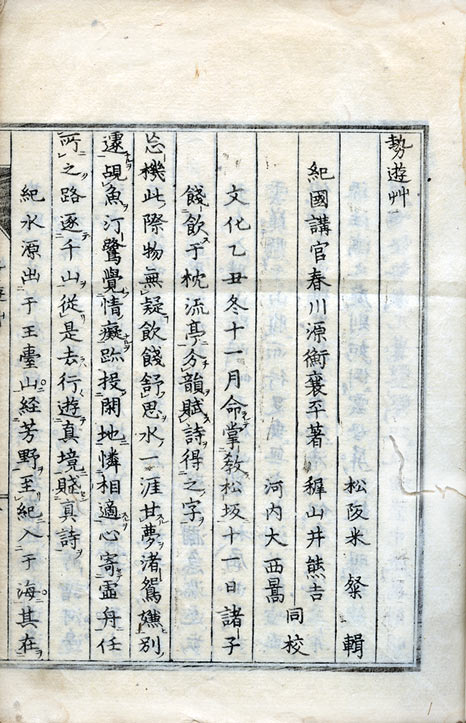 勢遊艸
松阪米粲輯
紀國講官春川源衡襄平著 穉山井熊吉
河内大西暠 同校
文化乙丑冬十一月命掌教松坂十一日諸子
餞飲于枕流亭分韻賦詩得之字
忘機此際物無疑飲餞舒思水一涯甘夢渚鴛儀別
遽覘魚汀鷺覺情癡跡投閑地憐相適心寄靈舟任
所之路逐千山從是去行遊真境賤真詩
紀水源出于王臺山経芳野至紀入于海其在